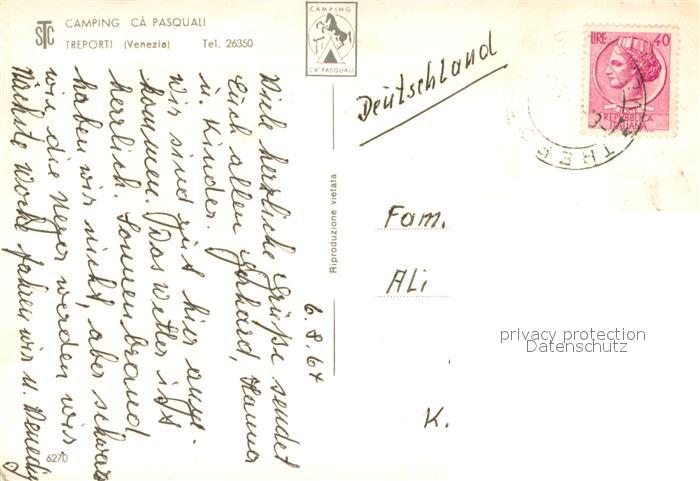 CAMPING CÀ PASQUALI
TREPORTI (Venezia) Tel. 26350
STC
CAMPING
CA' PASQUALI
LIRE 40
REPUBBLICA
ITALIANA
Deutschland
6.8.64
Viele herzliche Grüße sendet
Euch allen Gerhard, Hanna
u. Kinder.
Wir sind gut hier ange-
kommen. Das Wetter ist
herrlich. Sonnenbrand
haben wir nicht, aber schwarz
wie die Neger werden wir.
Nächste Woche fahren wir n. Venedig
Riproduzione vietata
Fam.
ALi
K.
privacy protection
Datenschutz
6270